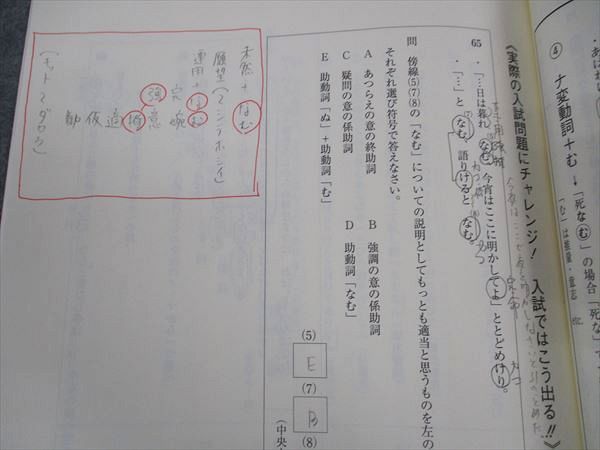 ④ ナ変動詞＋む→「死なむ」の場合「死な
「む」は推量・意志 etc.
《実際の入試問題にチャレンジ! 入試ではこう出る!!》
65
・「…日は暮れなむ。今宵はここに明かしてよ」ととどめけり。
・「…」となむ、語りけるとなむ。
問 傍線(5)(7)(8)の「なむ」についての説明としてもっとも適当と思うものを左の
それぞれ選び符号で答えなさい。
A あつらえの意の終助詞
B 強調の意の係助詞
C 疑問の意の係助詞
D 助動詞「なむ」
E 助動詞「ぬ」＋助動詞「む」
(5)
E
(7)
B
(8)
(中央
未然＋なむ
願望(〜シテホシイ)
連用＋なむ
完 婉
強 意 推 適 仮 勧